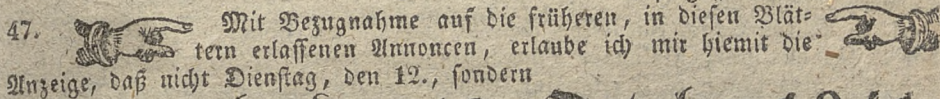 47. Mit Bezugnahme auf die früheren, in diesen Blät-
tern erlassenen Annoncen, erlaube ich mir hiemit die
Anzeige, daß nicht Dienstag, den 12., sondern